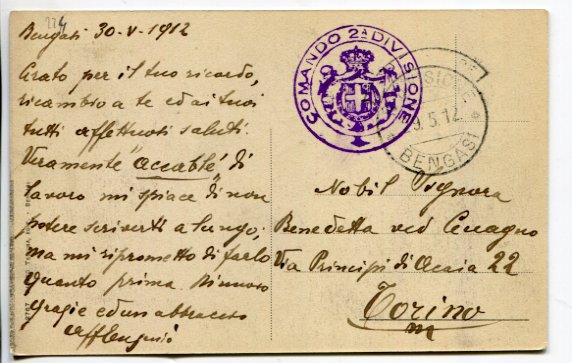 224
Bengasi 30-V-1912
Grato per il tuo ricordo,
ricambio a te ed ai tuoi
tutti affettuosi saluti.
Veramente "accablé" di
lavoro mi spiace di non
potere scriverti a lungo,
ma mi riprometto di farlo
quanto prima. Rinnovo
grazie ed un abbraccio
COMANDO 2ª DIVISIONE
DIVISIONE
5.12
BENGASI
Nobil Signora
Benedetta ved
Via Principi di Acaia 22
Torino